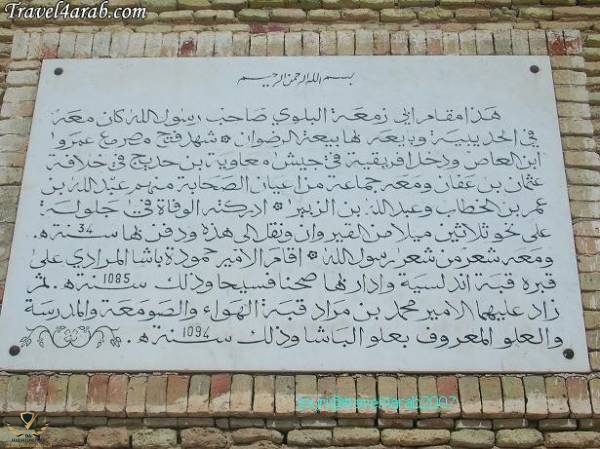 Travel4arab.com
بسم الله الرحمن الرحيم
هذا مقام أبي زمعة البلوي صاحب رسول الله كان معه
في الحديبية وبايعه لها بيعة الرضوان * شهد فتح مصر مع عمرو
ابن العاص ودخل افريقية في جيش معاوية بن حديج في خلافة
عثمان بن عفان ومعه جماعة من اعيان الصحابة منهم عبد الله بن
عمر بن الخطاب وعبد الله بن الزبير * ادركته الوفاة في جلولة
على نحو ثلاثين ميلا من القيروان ونقل الى هذه ودفن لها سنة 34 ه.
ومعه شعر من شعر رسول الله * اقام الامير حمودة باشا المرادي على
قبره قبة اندلسية وادار لها صحنا فسيحا وذلك سنة 1085 ه. ثم
زاد عليهما الامير محمد بن مراد قبة الهواء والصومعة والمدرسة
والعلو المعروف بعلو الباشا وذلك سنة 1094 ه.